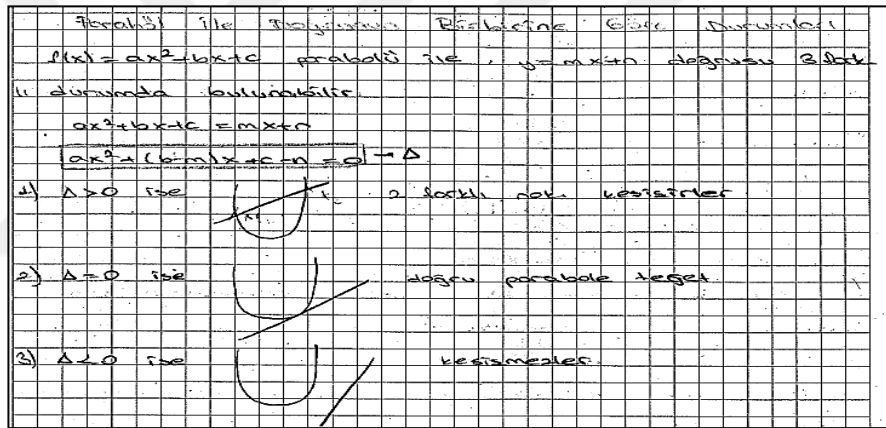 Parabol ile Doğrunun Birbirine Göre Durumları
f(x) = ax²+bx+c parabolü ile, y=mx+n doğrusu 3 fark-
lı durumda bulunabilir.
ax²+bx+c = mx+n
ax²+(b-m)x+c-n = 0 → Δ
1) Δ>0 ise 2 farklı nok. kesişirler
2) Δ=0 ise doğru parabole teğet
3) Δ<0 ise kesişmezler.